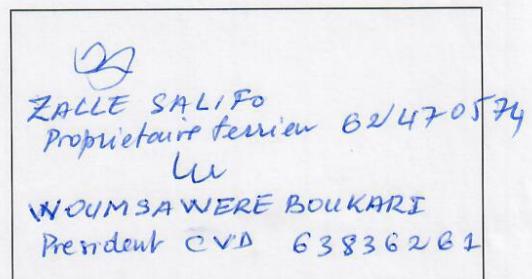 ZALLE SALIFO
Proprietaire terrien 62470574
WOUMSAWERE BOUKARI
President CVD 63836261